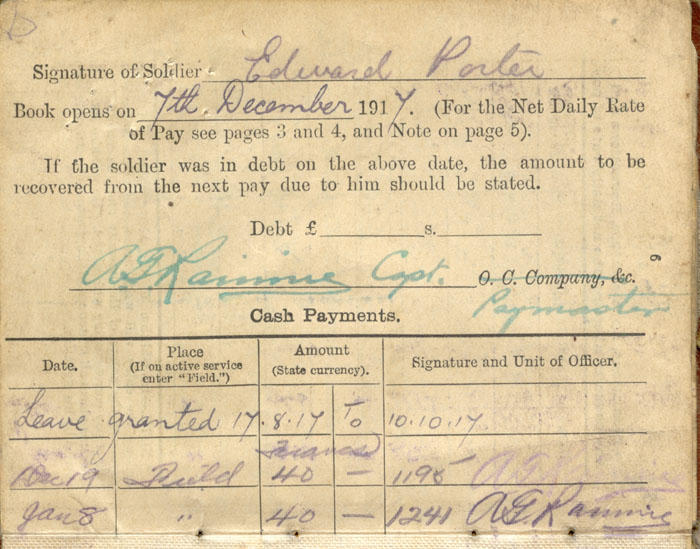 Signature of Soldier Edward Porter
Book opens on 7th December 1917. (For the Net Daily Rate
of Pay see pages 3 and 4, and Note on page 5).
If the soldier was in debt on the above date, the amount to be
recovered from the next pay due to him should be stated.
Debt £ s.
Capt. O. C. Company, &c.
Paymaster
9
Cash Payments.
Date. Place (If on active service enter "Field.") Amount (State currency). Signature and Unit of Officer.
Leave granted 17.8.17 To 10.10.17
Francs
Dec 19 Field 40 — 1195
Jan 8 " 40 — 1241